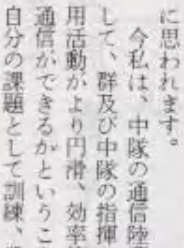 に思われます。
今私は、中隊の通信陸
して、群及び中隊の指揮
用活動がより円滑、効率
通信ができるかというこ
自分の課題として訓練、